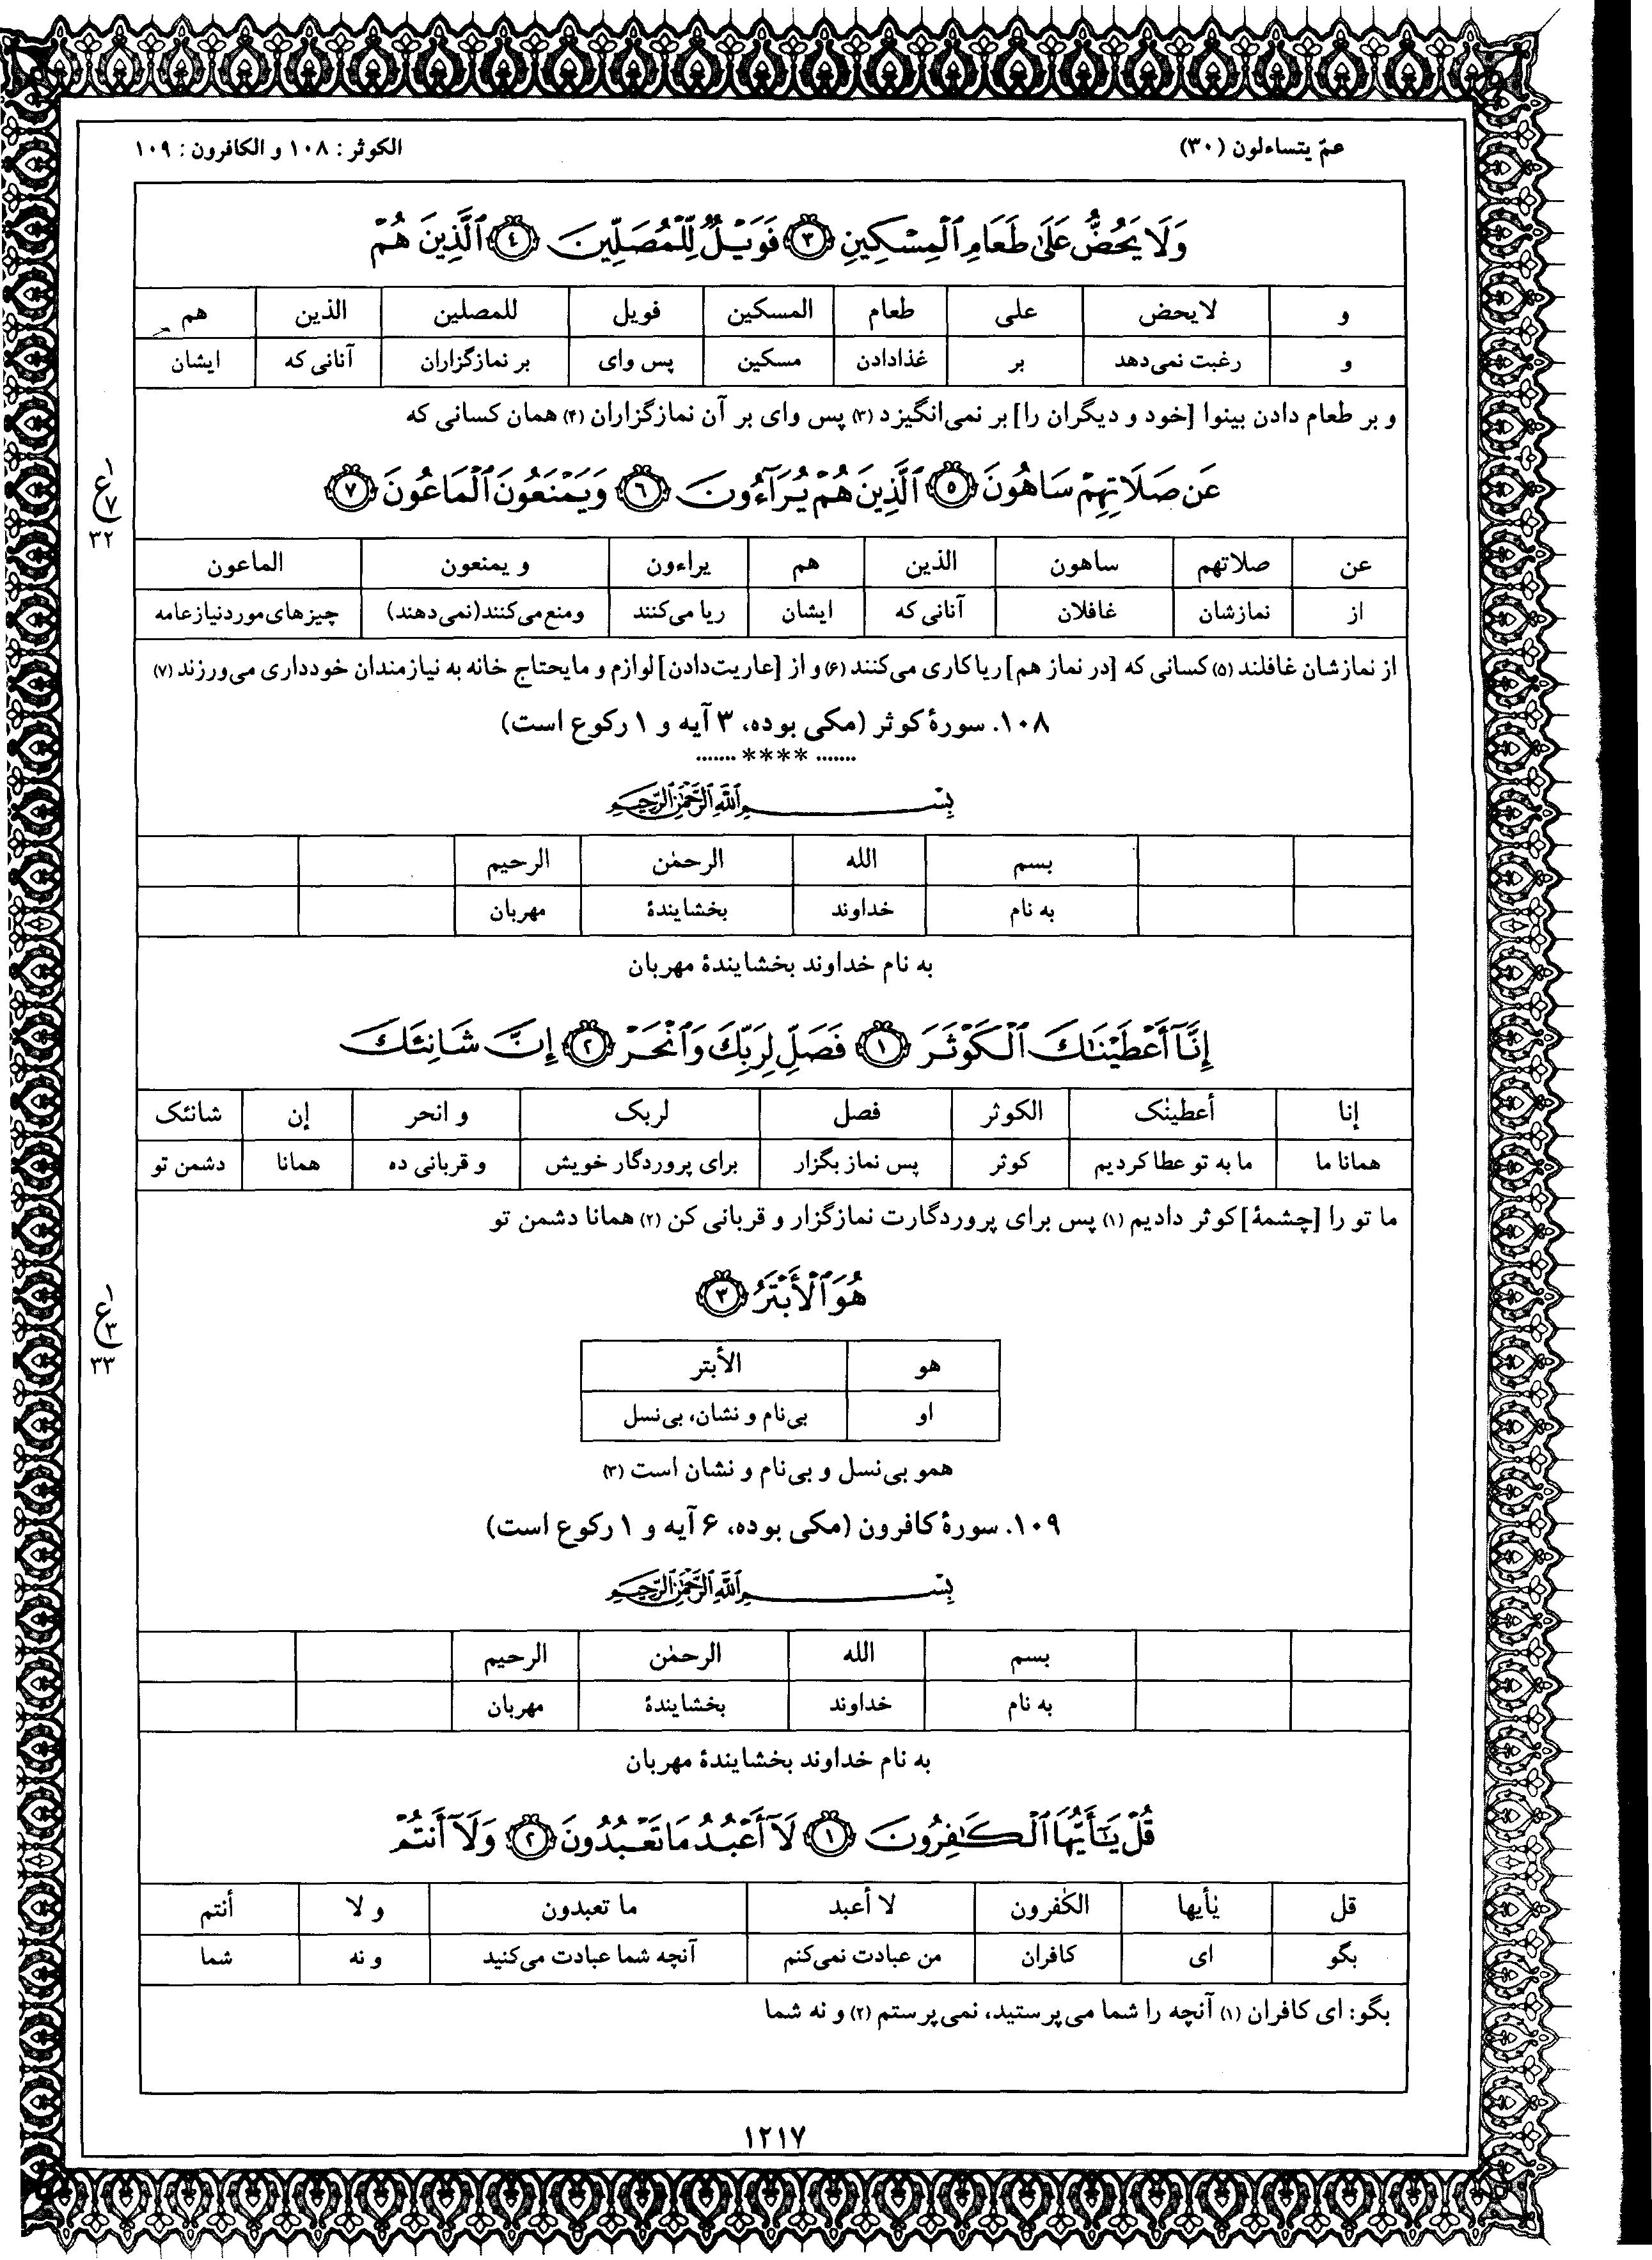 عمّ یتساءلون (۳۰)
الکوثر : ۱۰۸ و الکافرون : ۱۰۹
وَلَا يَحُضُّ عَلَىٰ طَعَامِ ٱلْمِسْكِينِ ٣ فَوَيْلٌ لِّلْمُصَلِّينَ ٤ ٱلَّذِينَ هُمْ
و لایحض علی طعام المسکین فویل للمصلین الذین هم
و رغبت نمی‌دهد بر غذادادن مسکین پس وای بر نمازگزاران آنانی که ایشان
و بر طعام دادن بینوا [خود و دیگران را] بر نمی‌انگیزد (۳) پس وای بر آن نمازگزاران (۴) همان کسانی که
عَن صَلَاتِهِمْ سَاهُونَ ٥ ٱلَّذِينَ هُمْ يُرَآءُونَ ٦ وَيَمْنَعُونَ ٱلْمَاعُونَ ٧
۱
ع
۷
۳۲
عن صلاتهم ساهون الذین هم یراءون و یمنعون الماعون
از نمازشان غافلان آنانی که ایشان ریا می‌کنند ومنع می‌کنند(نمی‌دهند) چیزهای موردنیازعامه
از نمازشان غافلند (۵) کسانی که [در نماز هم] ریاکاری می‌کنند (۶) و از [عاریت‌دادن] لوازم و مایحتاج خانه به نیازمندان خودداری می‌ورزند (۷)
۱۰۸. سورهٔ کوثر (مکی بوده، ۳ آیه و ۱ رکوع است)
....... **** .......
بِسْمِ ٱللَّهِ ٱلرَّحْمَٰنِ ٱلرَّحِيمِ
بسم الله الرحمٰن الرحیم
به نام خداوند بخشایندهٔ مهربان
به نام خداوند بخشایندهٔ مهربان
إِنَّآ أَعْطَيْنَٰكَ ٱلْكَوْثَرَ ١ فَصَلِّ لِرَبِّكَ وَٱنْحَرْ ٢ إِنَّ شَانِئَكَ
إنا أعطینٰک الکوثر فصل لربک و انحر إن شانئک
همانا ما ما به تو عطا کردیم کوثر پس نماز بگزار برای پروردگار خویش و قربانی ده همانا دشمن تو
ما تو را [چشمهٔ] کوثر دادیم (۱) پس برای پروردگارت نمازگزار و قربانی کن (۲) همانا دشمن تو
هُوَ ٱلْأَبْتَرُ ٣
۱
ع
۳
۳۳
هو الأبتر
او بی‌نام و نشان، بی‌نسل
همو بی‌نسل و بی‌نام و نشان است (۳)
۱۰۹. سورهٔ کافرون (مکی بوده، ۶ آیه و ۱ رکوع است)
بِسْمِ ٱللَّهِ ٱلرَّحْمَٰنِ ٱلرَّحِيمِ
بسم الله الرحمٰن الرحیم
به نام خداوند بخشایندهٔ مهربان
به نام خداوند بخشایندهٔ مهربان
قُلْ يَٰٓأَيُّهَا ٱلْكَٰفِرُونَ ١ لَآ أَعْبُدُ مَا تَعْبُدُونَ ٢ وَلَآ أَنتُمْ
قل یٰأیها الکٰفرون لا أعبد ما تعبدون و لا أنتم
بگو ای کافران من عبادت نمی‌کنم آنچه شما عبادت می‌کنید و نه شما
بگو: ای کافران (۱) آنچه را شما می‌پرستید، نمی‌پرستم (۲) و نه شما
۱۲۱۷